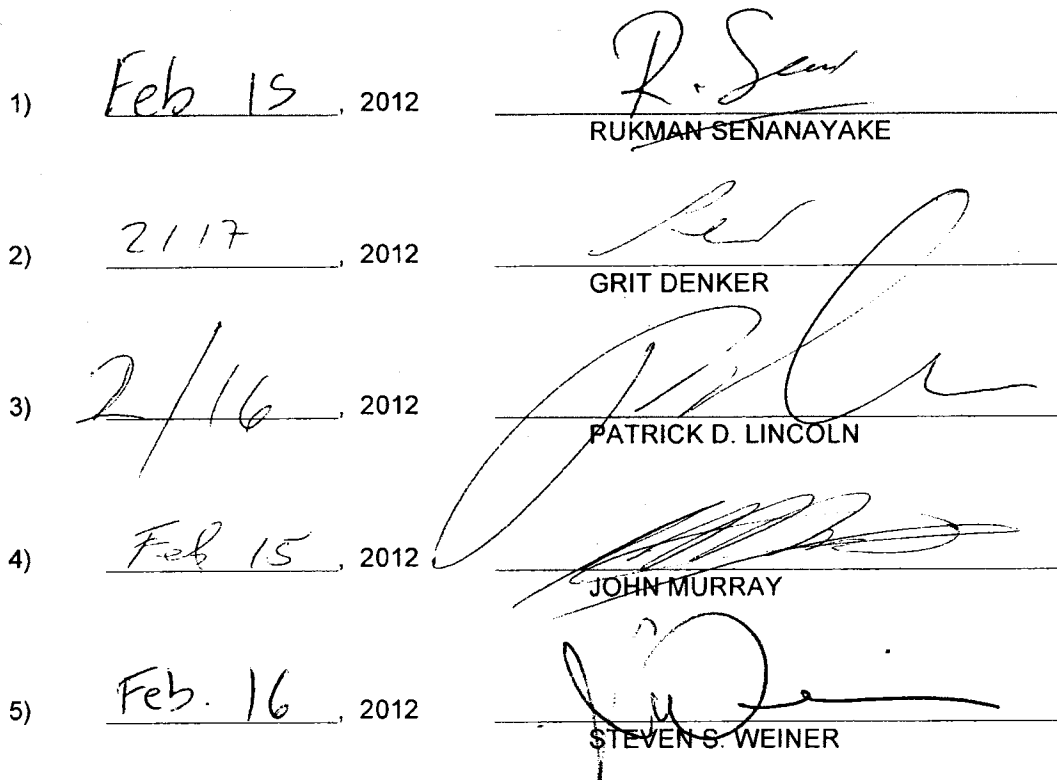 1) Feb 15, 2012 R. Sen
RUKMAN SENANAYAKE
2) 2/17, 2012
GRIT DENKER
3) 2/16, 2012
PATRICK D. LINCOLN
4) Feb 15, 2012
JOHN MURRAY
5) Feb. 16, 2012
STEVEN S. WEINER